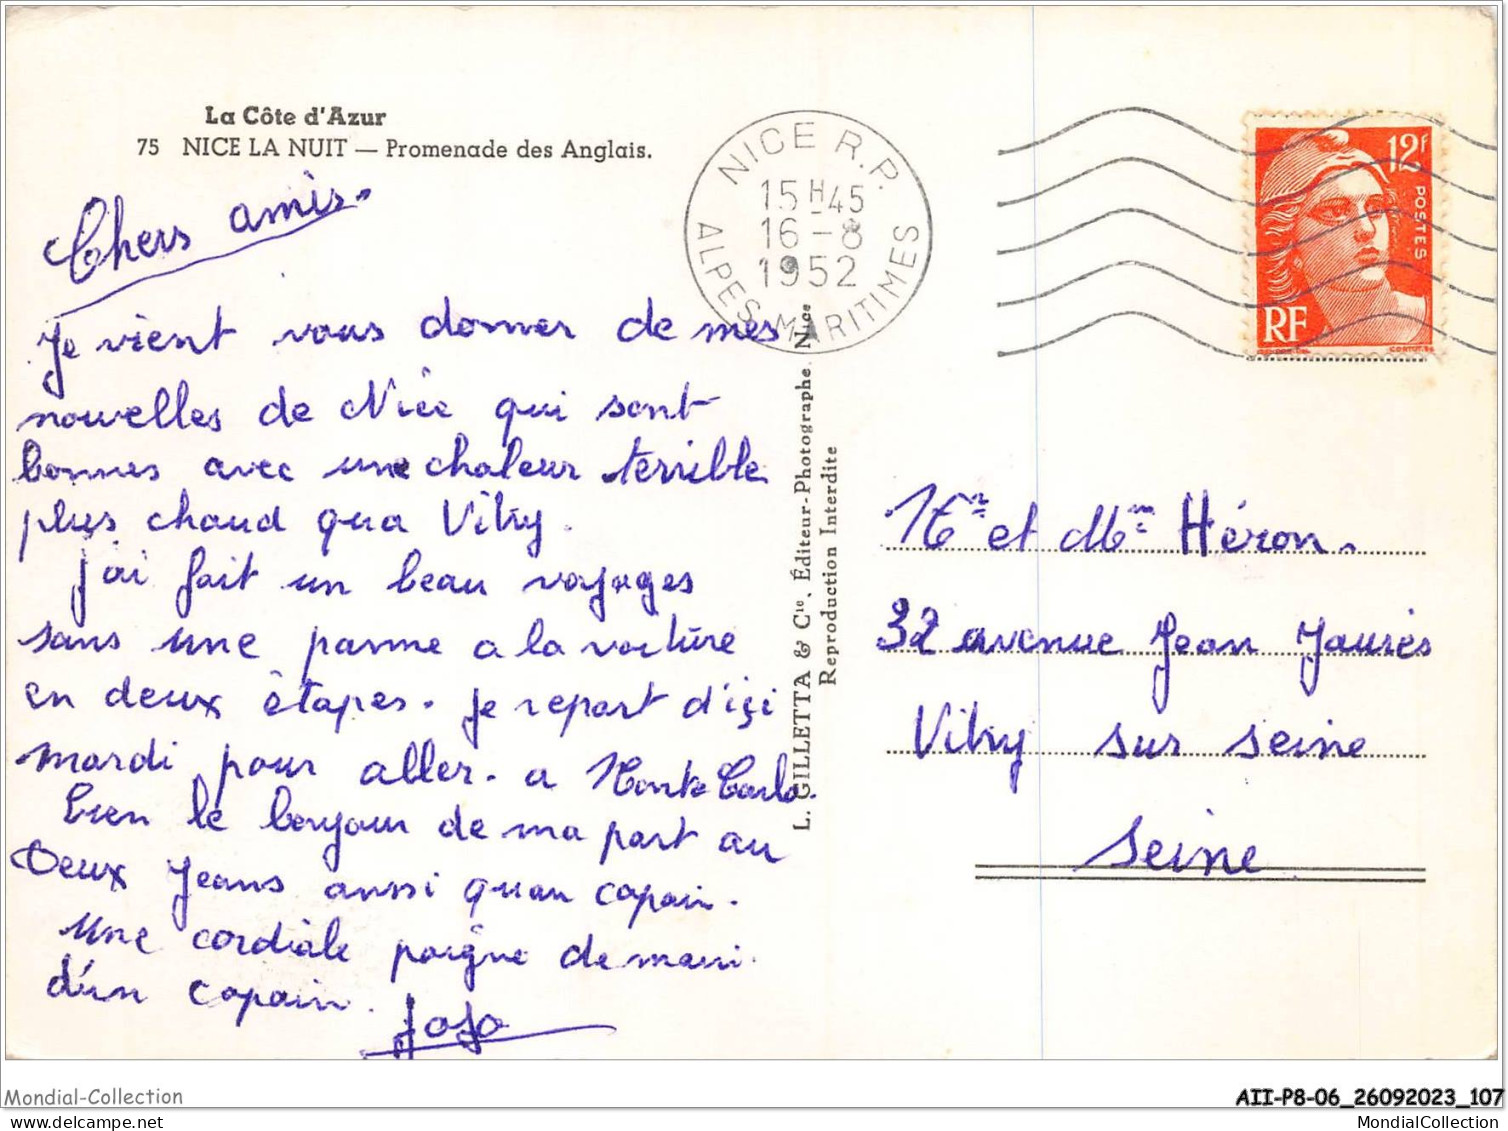 La Côte d'Azur
75 NICE LA NUIT — Promenade des Anglais.
Chers amis.
Je vient vous donner de mes
nouvelles de Nice qui sont
bonnes avec une chaleur terrible
plus chaud qua Vitry.
j'ai fait un beau voyages
sans une panne a la voiture
en deux étapes. je repart d'içi
mardi pour aller. a Monte Carlo.
bien le bonjour de ma part au
Deux Jeans aussi quau copain.
Une cordiale poigne de main
d'un copain.
Jojo
NICE R.P.
15H45
16-8
1952
ALPES-MARITIMES
L. GILLETTA & Cie, Éditeur-Photographe, Nice
Reproduction Interdite
12F
POSTES
RF
Mr et Mme Héron.
32 avenue Jean Jaurès
Vitry sur seine
Seine
Mondial-Collection
AII-P8-06_26092023_107
MondialCollection
MondialCollection